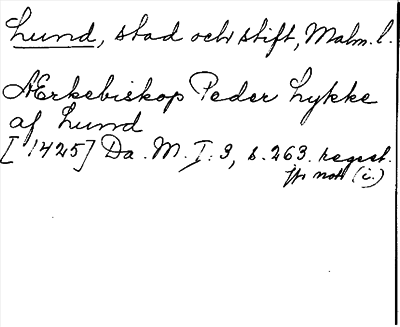 Lund, stad och stift, Malm. l.
Ærkebiskop Peder Lykke
af Lund
[1425] Da. M. I. 3, s. 263. regest.
not (i.)